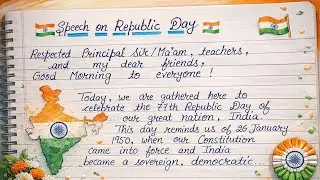 Speech on Republic Day
Respected Principal Sir/Ma'am, teachers,
and my dear friends,
Good Morning to everyone!
Today, we are gathered here to
celebrate the 77th Republic Day of
our great nation, India.
This day reminds us of 26 January
1950, when our Constitution
came into force and India
became a sovereign, democratic...